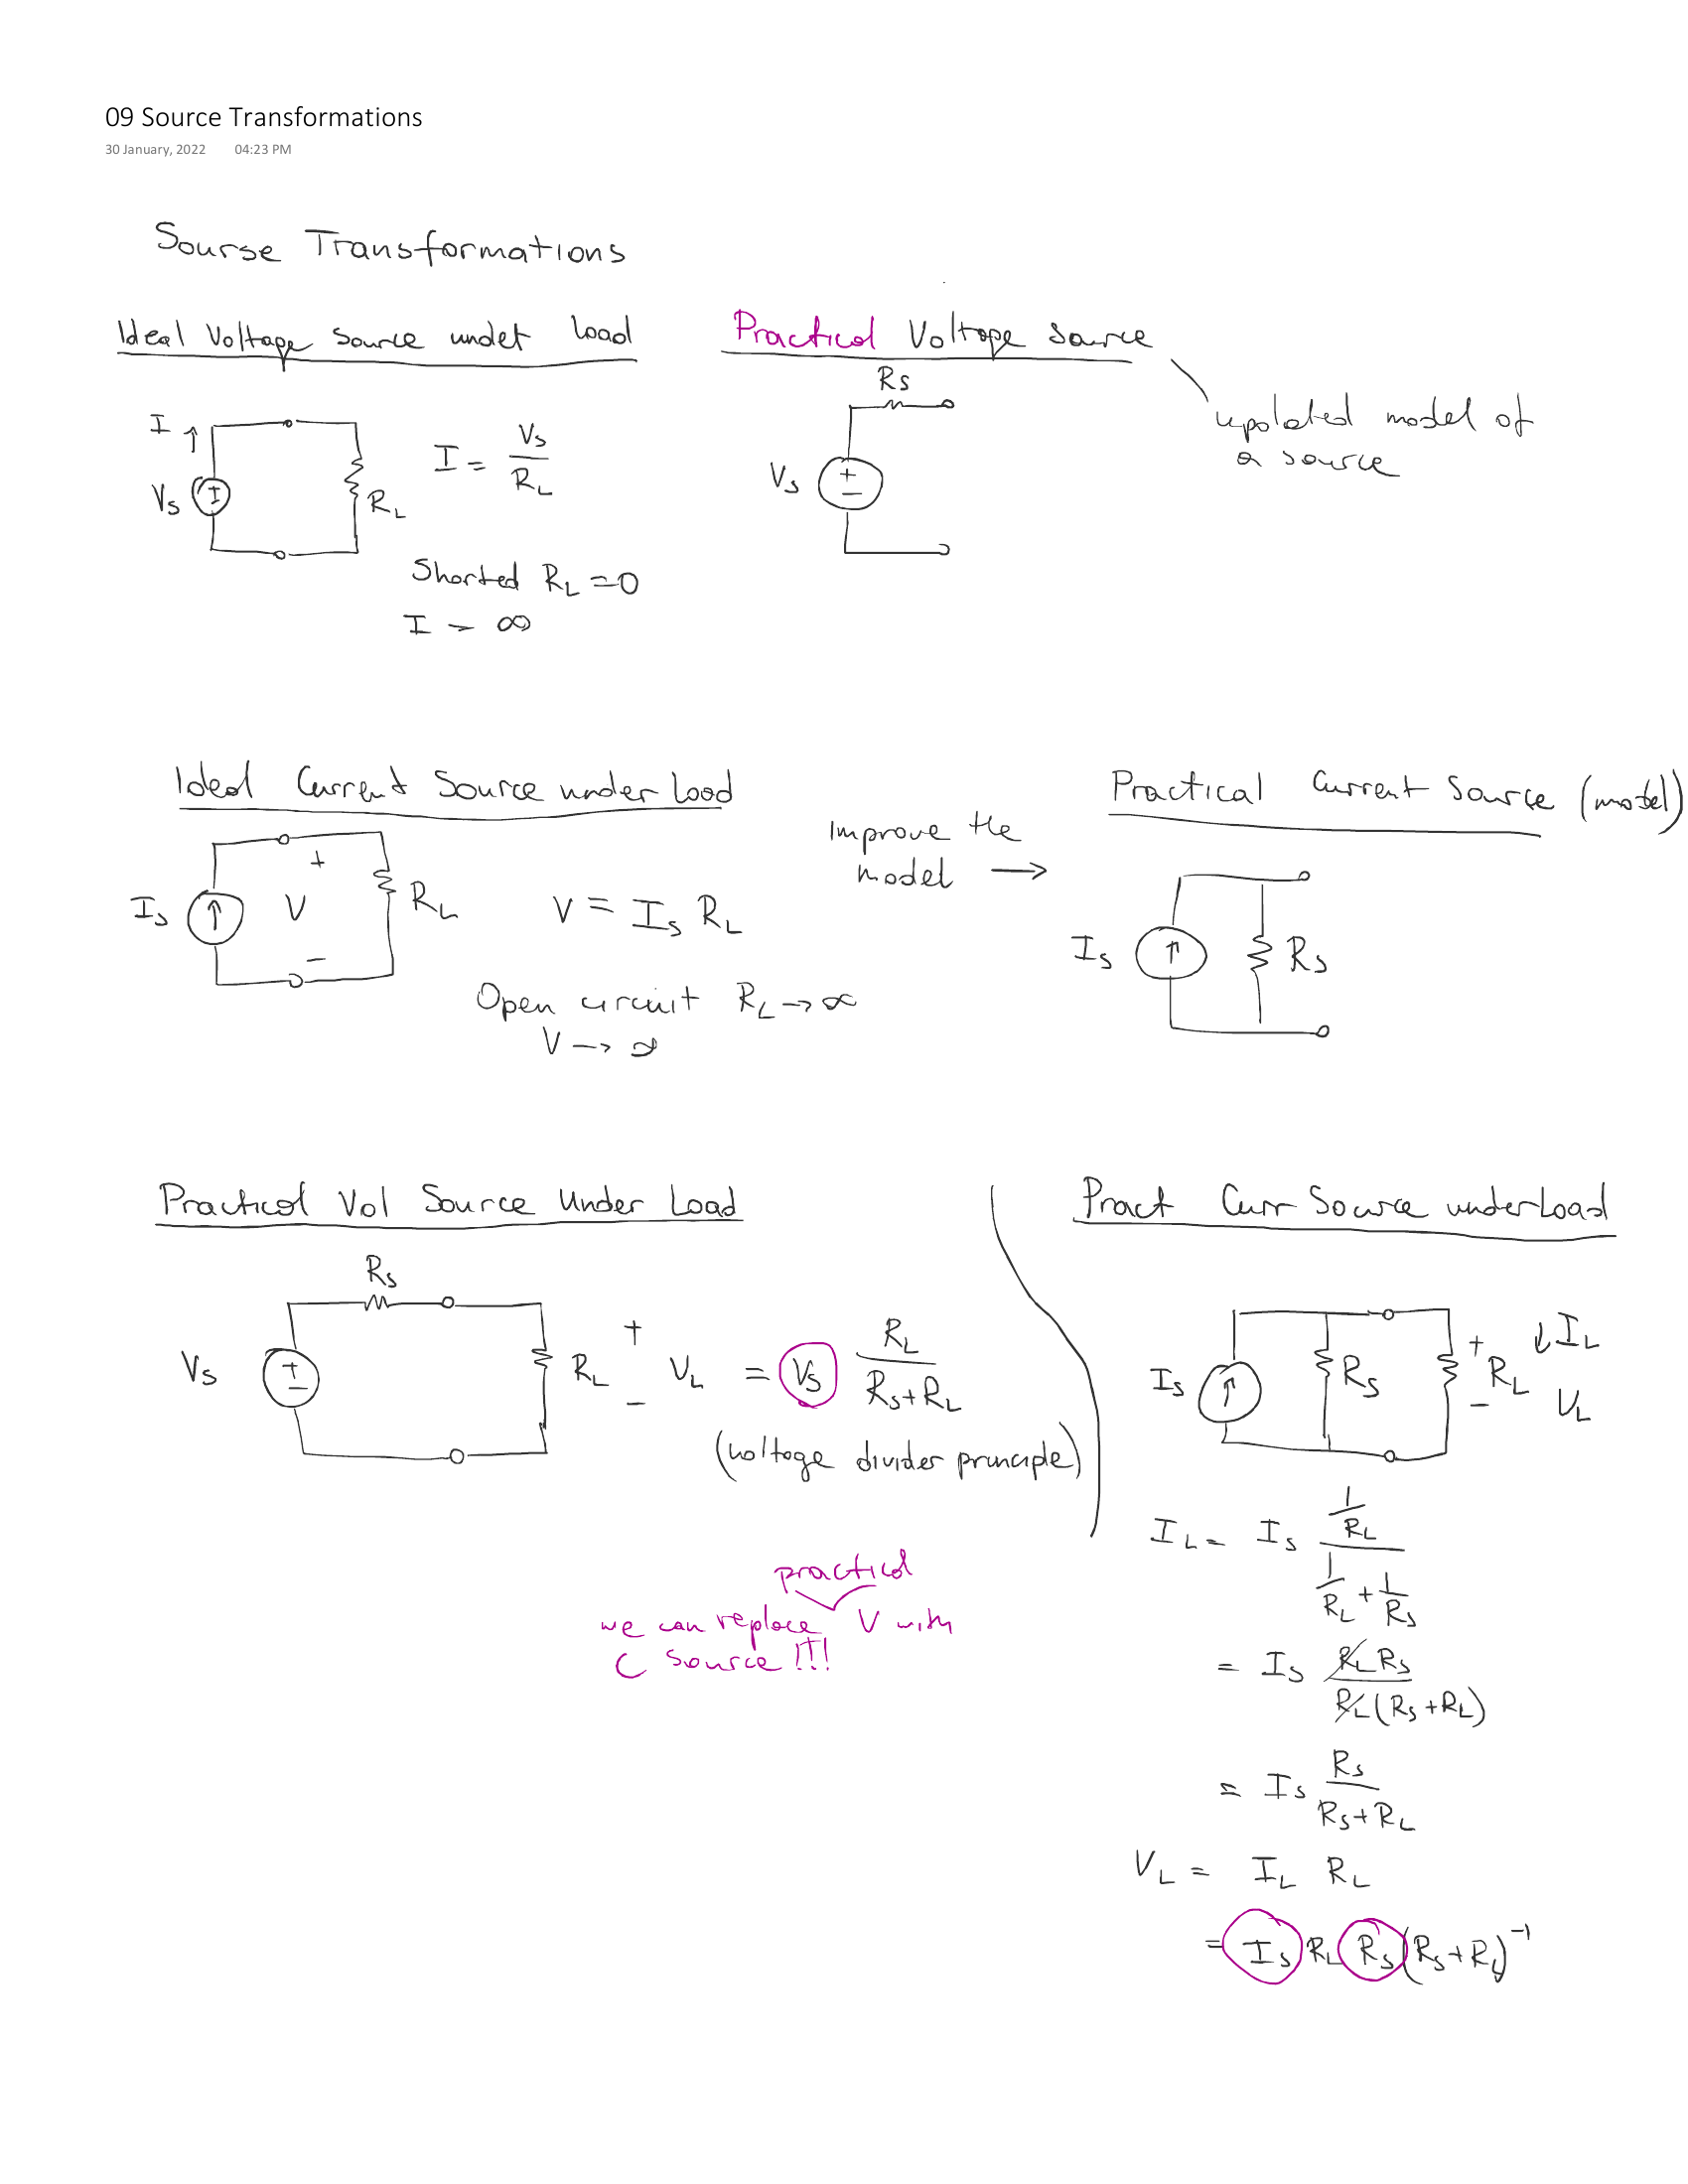 09 Source Transformations
30 January, 2022 04:23 PM
Sourse Transformations
Ideal Voltage Source undet load
I
Vs
RL
I = Vs / RL
Shorted RL = 0
I → ∞
Practical Voltage source
Rs
Vs
+
−
updated model of
a source
Ideal Current Source under Load
Is
+
V
−
RL
V = Is RL
Open circuit RL → ∞
V → ∞
Improve the
model →
Practical Current Source (model)
Is
Rs
Practical Vol Source Under Load
Rs
Vs
+
−
RL
+
VL = Vs RL / (Rs+RL)
−
(voltage divider principle)
practical
we can replace V with
C source !!!
Pract Curr Source under Load
Is
Rs
+
RL
−
↓ IL
VL
IL = Is (1/RL) / (1/RL + 1/Rs)
= Is RL Rs / RL (Rs + RL)
= Is Rs / (Rs + RL)
VL = IL RL
= Is RL Rs (Rs + RL)⁻¹